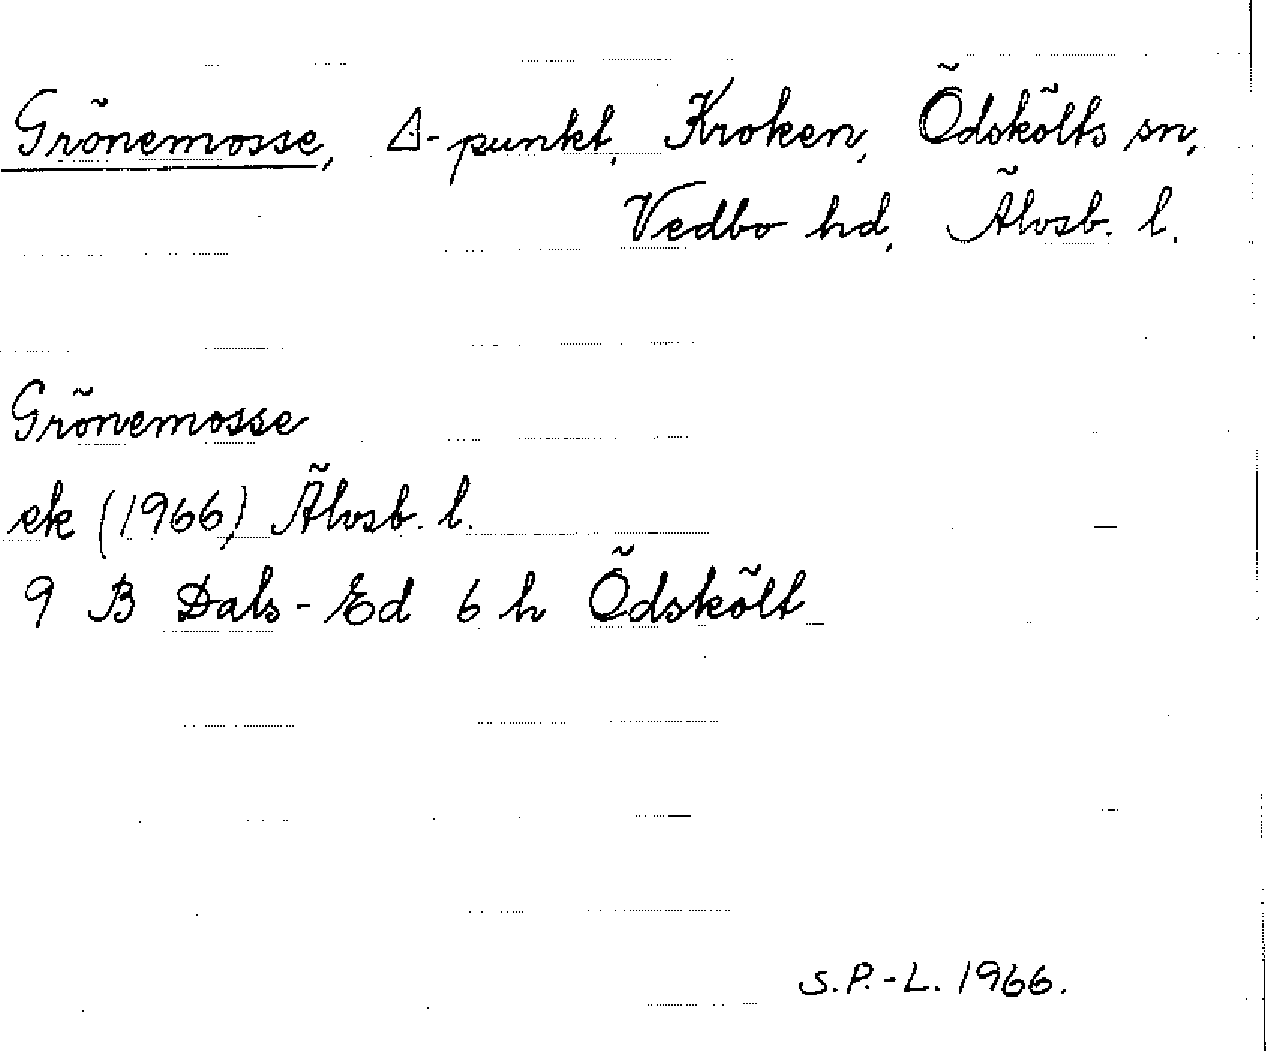 Grönemosse, Δ-punkt, Kroken, Ödskölts sn,
Vedbo hd, Älvsb. l.
Grönemosse
ek (1966) Älvsb. l.
9 B Dals-Ed 6 h Ödskölt
S.P.-L. 1966.